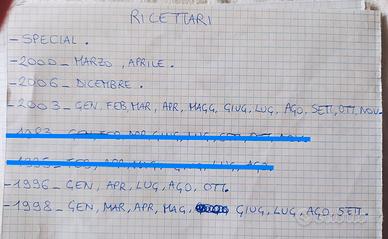 RICETTARI
- SPECIAL.
- 2000 - MARZO, APRILE.
- 2006 - DICEMBRE.
- 2003 - GEN, FEB, MAR, APR, MAGG, GIUG, LUG, AGO, SETT, OTT, NOV.
- 1996 - GEN, APR, LUG, AGO, OTT.
- 1998 - GEN, MAR, APR, MAG, GIUG, LUG, AGO, SETT.